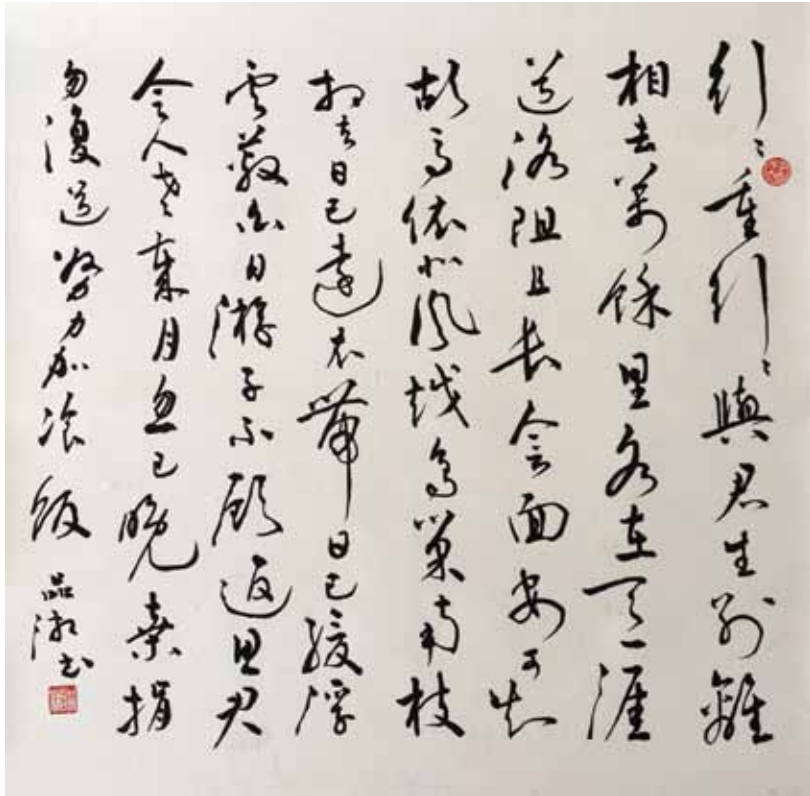 行々重行々與君生別離
相去萬餘里各在天一涯
道路阻且長會面安可知
胡馬依北風越鳥巢南枝
相去日已遠衣帶日已緩浮
雲蔽白日游子不顧返思君
令人老歲月忽已晚棄捐
勿復道努力加餐飯
品湘书